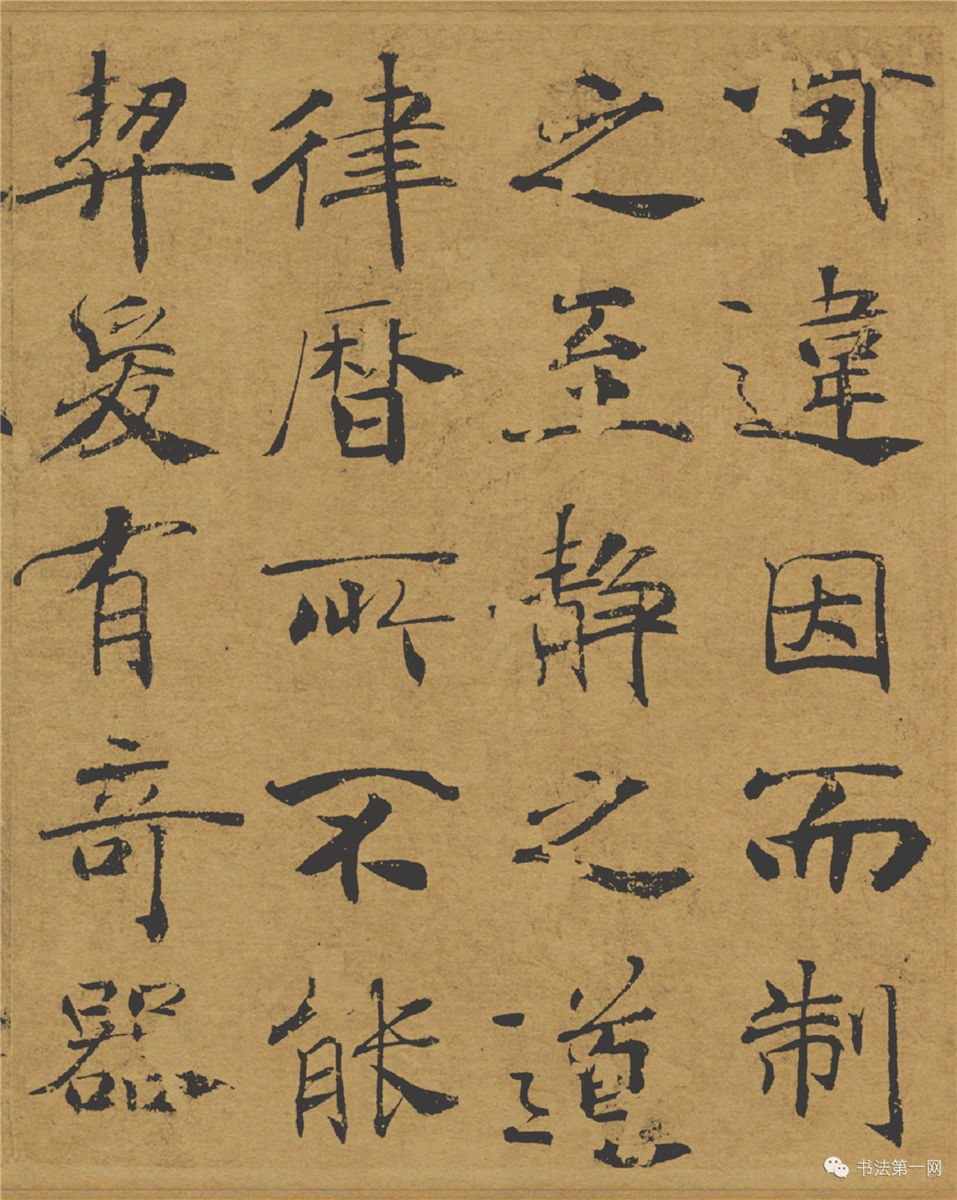 可違因而制
之至静之道
律曆所不能
契爰有奇器
书法第一网